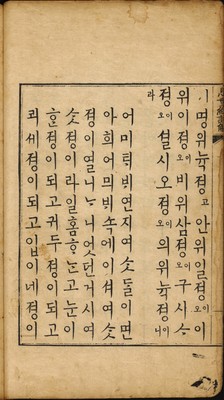 ㅣ명위뉵졍고안위일졍오이
위이졍오이비위삼졍오이구시ᄉᆞ
졍오이셜시오졍오이의위뉵졍이니
라
어미ᄐᆡᄇᆡ연지여소돌이면
아희어믜ᄇᆡ속에이셔여ᄉᆞᆺ
졍이열니ᄂᆞ니엇던거시여
ᄉᆞᆺ졍이라일홈ᄒᆞᄂᆞ고눈이
ᄒᆞᆫ졍이되고귀두졍이되고
코세졍이되고입이네졍이